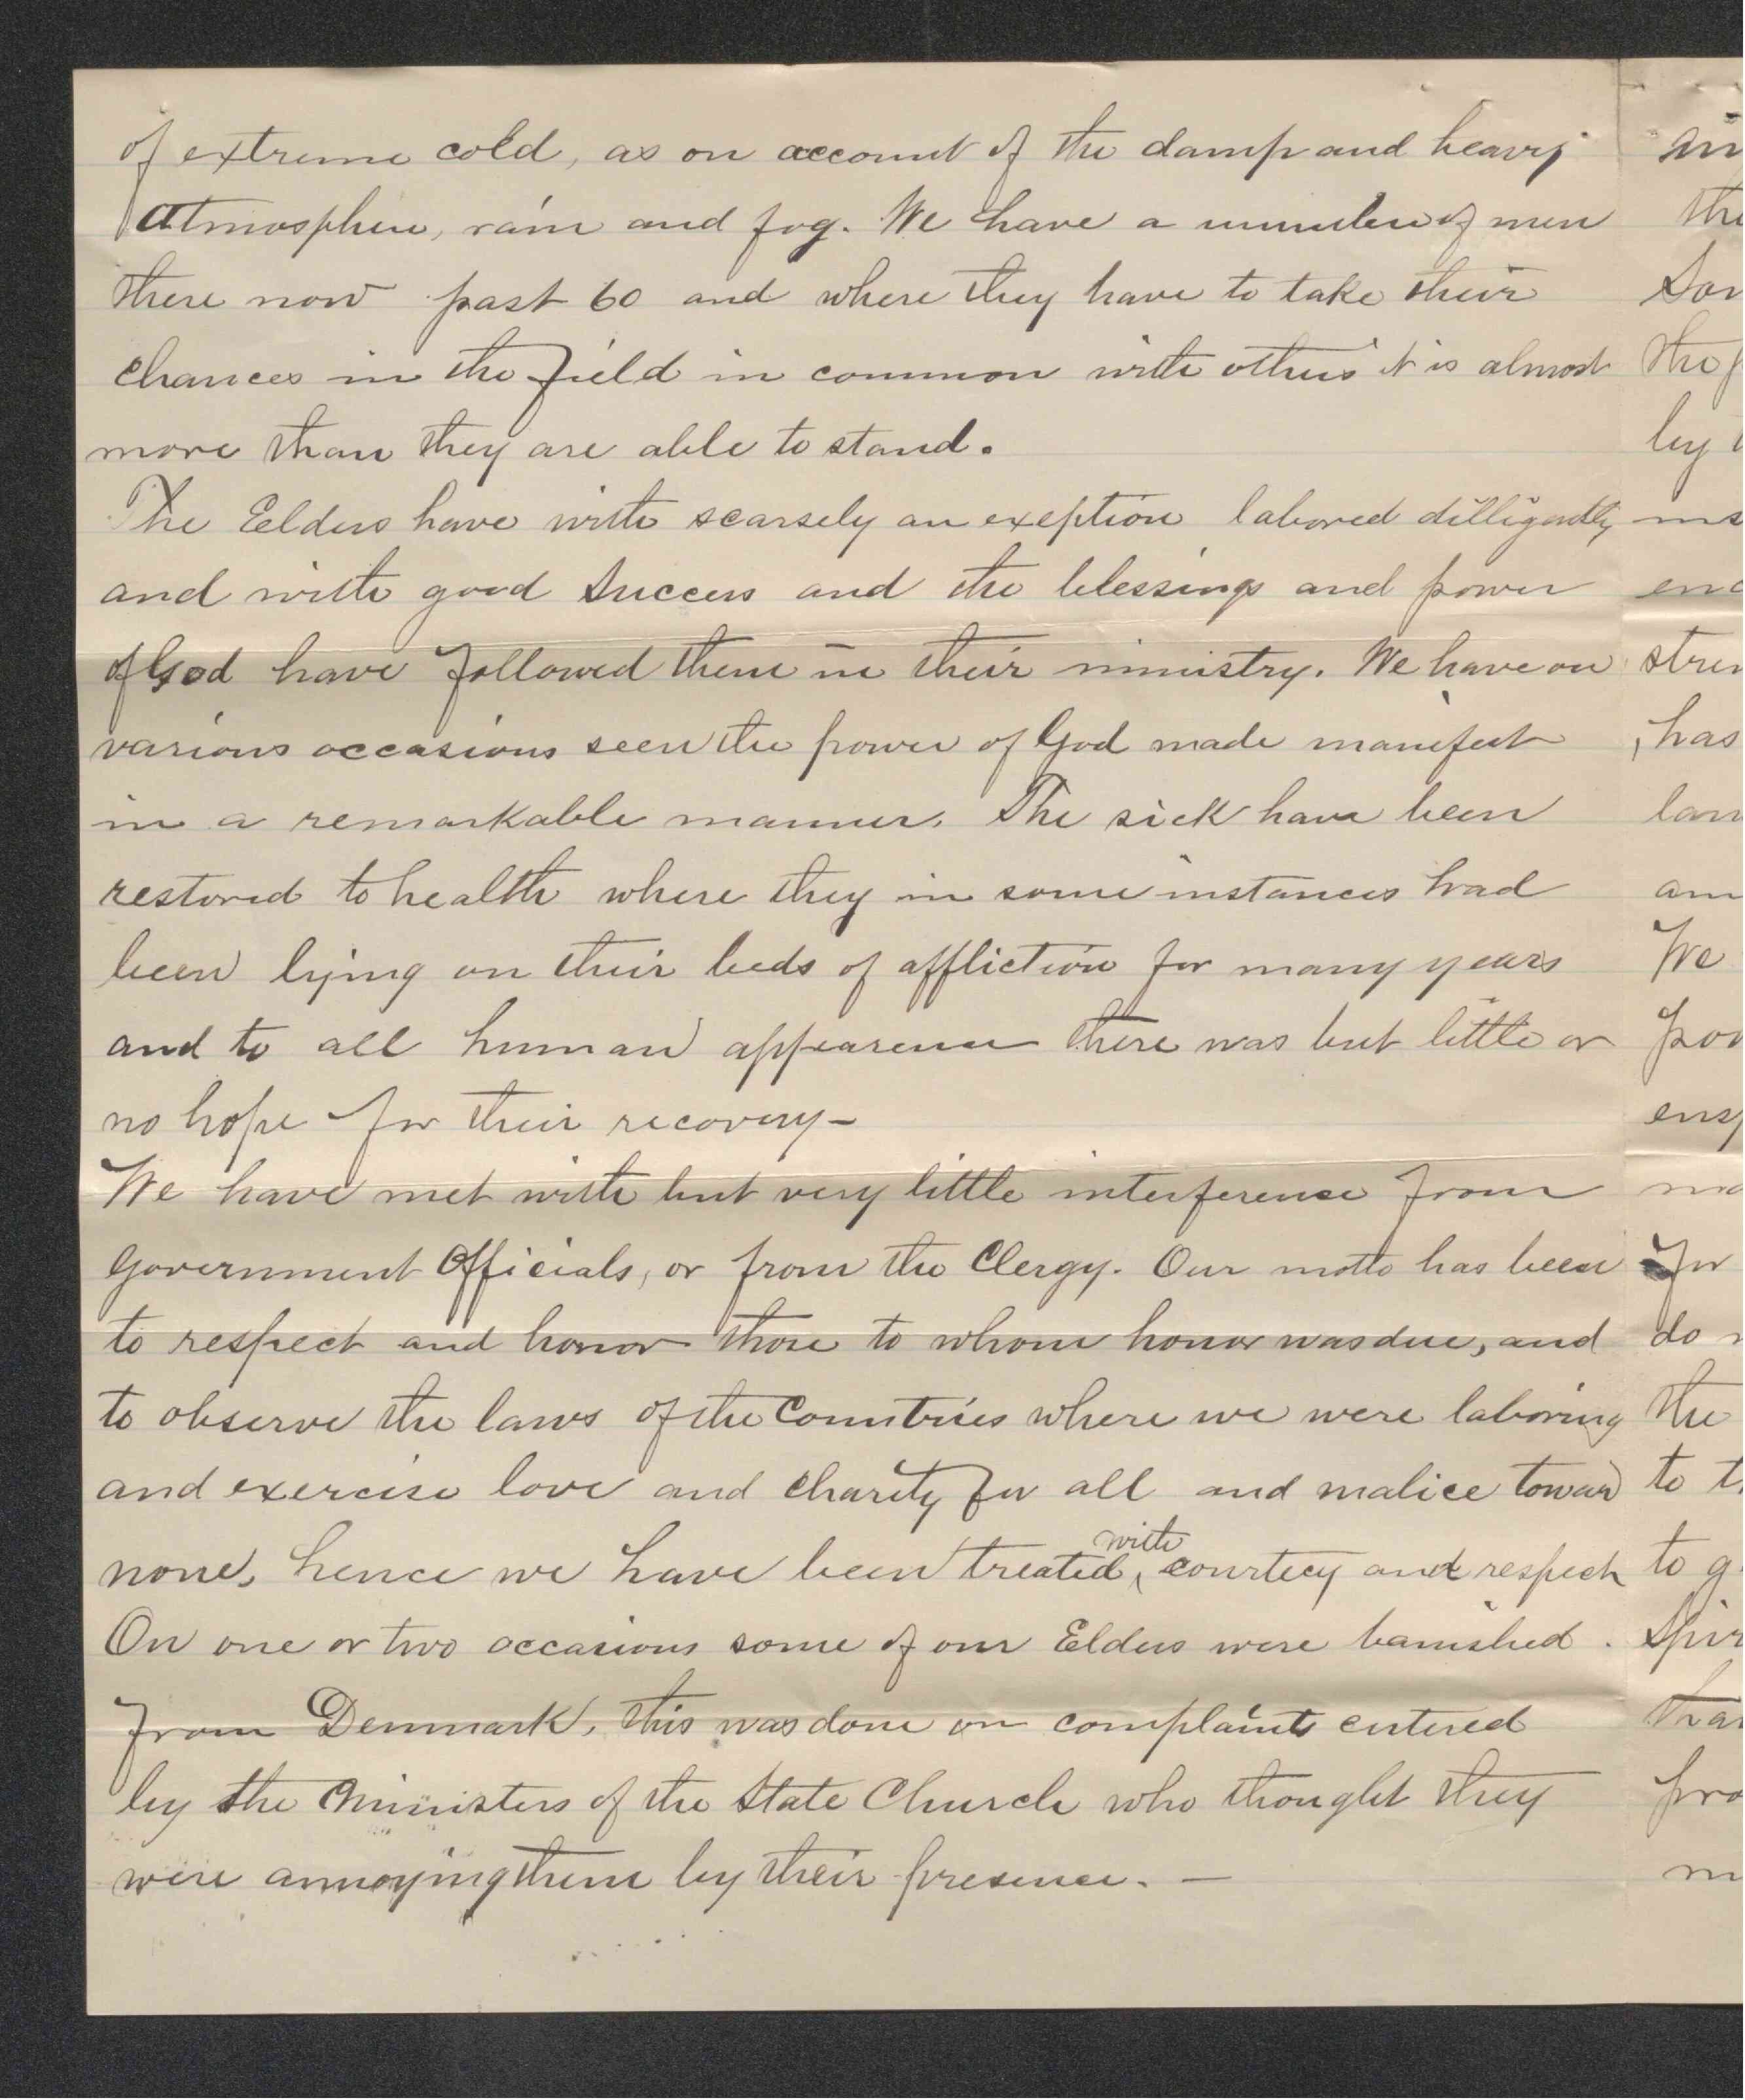 of extreme cold, as on account of the damp and heavy
Atmosphere, rain and fog. We have a number of men
there now past 60 and where they have to take their
chances in the field in common with others it is almost
more than they are able to stand.
The Eelders have with scarsely an exeption labored dilligently
and with good success and the blessings and power
of God have followed them in their ministry. We have on
various occasions seen the power of God made manifest
in a remarkable manner. The sick have been
restored to health where they in some instances had
been lying on their beds of affliction for many years
and to all human appearence there was but little or
no hope for their recovery-
We have met with but very little interference from
Government Officials, or from the Clergy. Our motto has been
to respect and honor those to whom honor was due, and
to observe the laws of the Countries where we were laboring
and exercise love and charity for all and malice toward
none, hence we have been treated, with courtecy and respect
On one or two occasions some of our Elders were banished.
from Denmark, this was done on complaints entered
by the Ministers of the State Church who thought they
were annoying them by their presence. —
in
the
Sor
the p
by t
ms
enc
stren
has
lan
am
We
pov
ensp
mo
for
do n
the
to t
to g
Spir
tra
pro
m